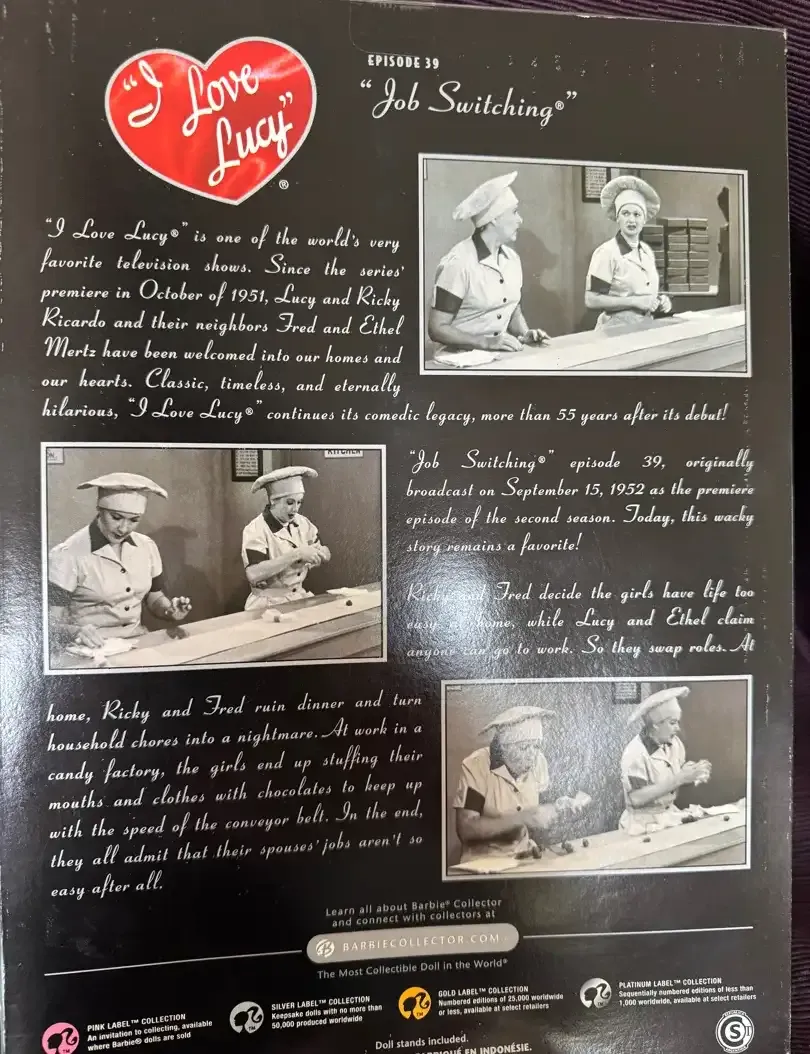 "I Love Lucy"®
EPISODE 39
"Job Switching®"
"I Love Lucy®" is one of the world's very
favorite television shows. Since the series'
premiere in October of 1951, Lucy and Ricky
Ricardo and their neighbors Fred and Ethel
Mertz have been welcomed into our homes and
our hearts. Classic, timeless, and eternally
hilarious, "I Love Lucy®" continues its comedic legacy, more than 55 years after its debut!
KITCHEN
"Job Switching®" episode 39, originally
broadcast on September 15, 1952 as the premiere
episode of the second season. Today, this wacky
story remains a favorite!
Ricky and Fred decide the girls have life too
easy at home, while Lucy and Ethel claim
anyone can go to work. So they swap roles. At
home, Ricky and Fred ruin dinner and turn
household chores into a nightmare. At work in a
candy factory, the girls end up stuffing their
mouths and clothes with chocolates to keep up
with the speed of the conveyor belt. In the end,
they all admit that their spouses' jobs aren't so
easy after all.
Learn all about Barbie® Collector
and connect with collectors at
BARBIECOLLECTOR.COM
The Most Collectible Doll in the World®
PINK LABEL™ COLLECTION
An invitation to collecting, available
where Barbie® dolls are sold
SILVER LABEL™ COLLECTION
Keepsake dolls with no more than
50,000 produced worldwide
GOLD LABEL™ COLLECTION
Numbered editions of 25,000 worldwide
or less, available at select retailers
PLATINUM LABEL™ COLLECTION
Sequentially numbered editions of less than
1,000 worldwide, available at select retailers
Doll stands included.
FABRIQUÉ EN INDONÉSIE.
S